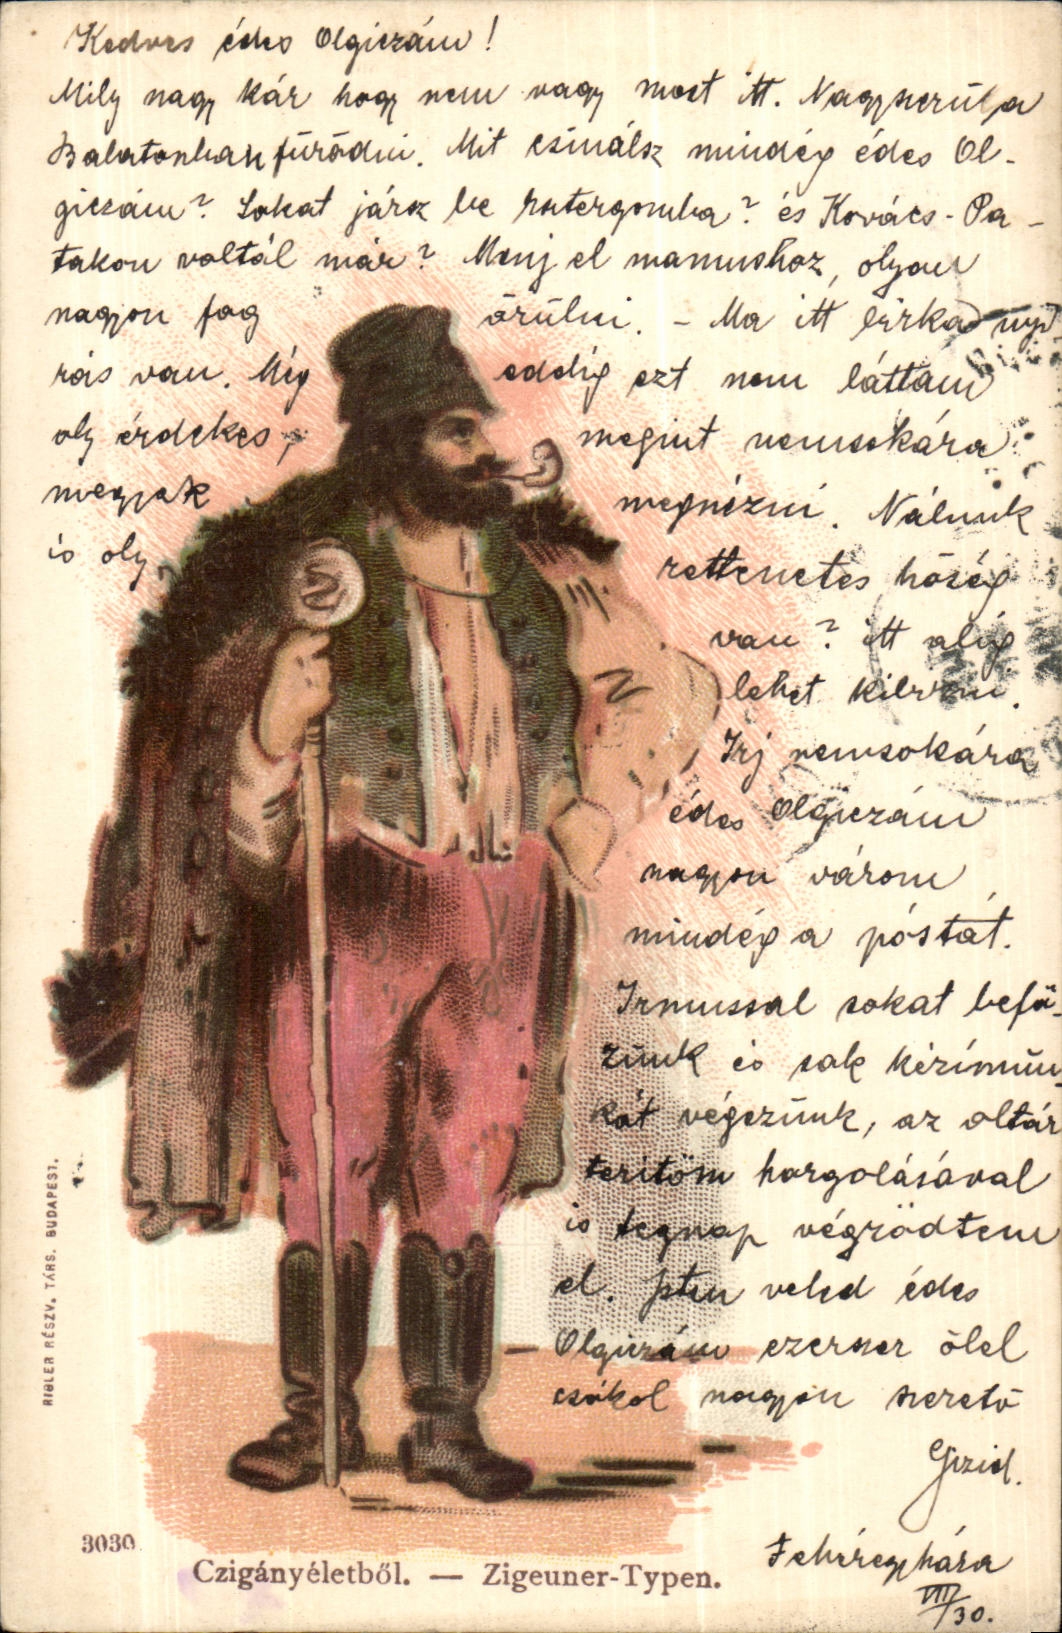 Kedves édes Olgiczám!
Mily nagy kár hogy nem vagy most itt. Nagyszerü a
Balatonban fürödni. Mit csinálsz mindég édes Ol-
giczám? Sokat jársz be ? és Kovács-Pa-
takon voltál már? Menj el mamushoz, olyan
nagyon fog örülni. – Ma itt birka nyi
rás van. Még eddig ezt nem láttam
oly érdekes, megint nemsokára
megyek megnézni. Nálunk
is oly rettenetes hőség
van? itt alig
lehet kibirni.
Irj nemsokára
édes Olgiczám
nagyon várom
mindég a póstát.
Irmussal sokat befő-
zünk és sok kézimun-
kát végezünk, az oltár
teritöm horgolásával
is tegnap végződtem
el. Isten veled édes
Olgiczám ezerszer ölel
csókol nagyon szerető
Gizid.
Fehéregyháza
VIII/30.
RIGLER RÉSZV. TÁRS. BUDAPEST.
3030
Czigányéletből. — Zigeuner-Typen.